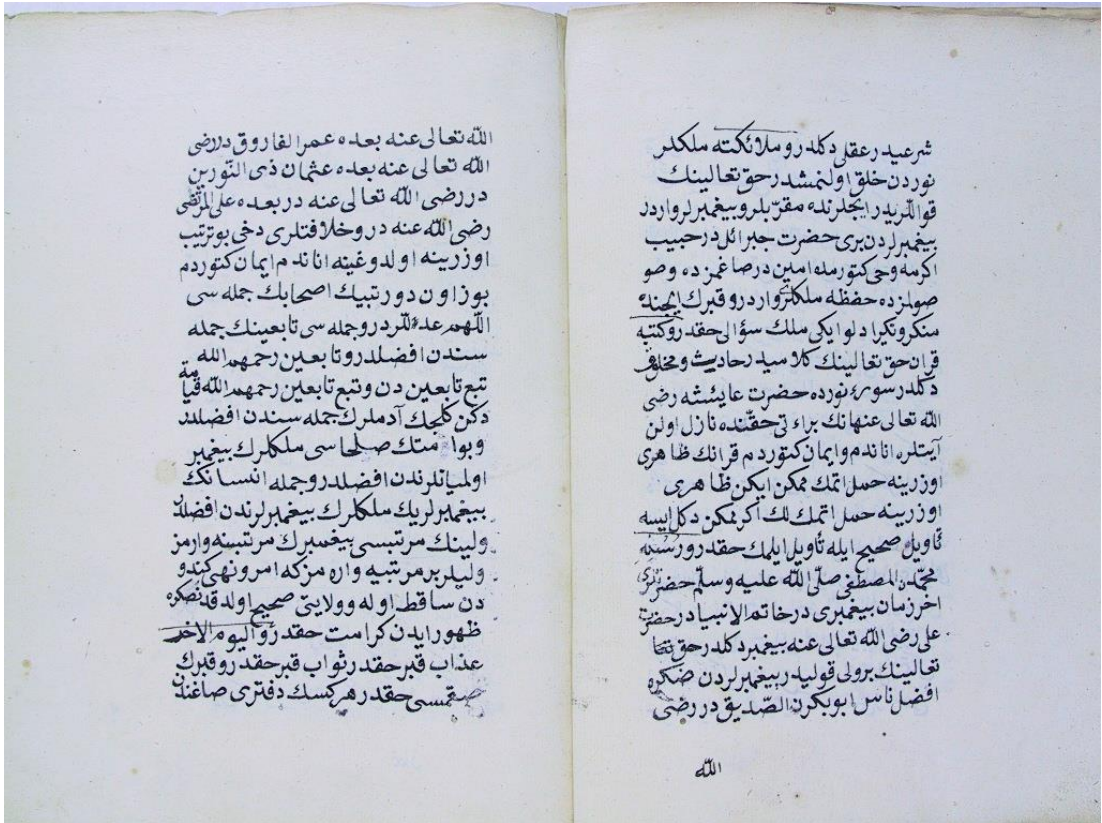 شرعيدر عقلى دكلدر و ملائكته ملكلر
نوردن خلق اولنمشدر حق تعالينك
قوللريدر ايچلرنده مقرّبلر و پيغمبرلر واردر
پيغمبرلردن برى حضرت جبرائلدر حبيب
اكرمه وحى كتورمده امين در صاغمزده وصو
صولمزده حفظه ملكلرى واردر و قبرك ايچنده
منكر و نكير ادلو ايكى ملك سؤالى حقدر و كتبه
قران حق تعالينك كلاميدر حادث و مخلوق
دكلدر سورۀ نورده حضرت عايشه رضى
الله تعالى عنهانك براءتى حقنده نازل اولن
آيتلره اناندم و ايمان كتوردم قرانك ظاهرى
اوزرينه حمل اتمك ممكن ايكن ظاهرى
اوزرينه حمل اتمك لك اكر ممكن دكل ايسه
تأويل صحيح ايله تأويل ايلمك حقدر و رسُله
محمّدن المصطفى صلّى الله عليه وسلّم حضرتلرى
اخر زمان پيغمبرى در خاتم الانبيادر حضرت
على رضى الله تعالى عنه پيغمبر دكلدر حق تعا
تعالينك بر ولى قوليدر پيغمبرلردن صكره
افضل ناس ابوبكرن الصّديق در رضى
الله
الله تعالى عنه بعده عمر الفاروق در رضى
الله تعالى عنه بعده عثمان ذى النّورين
در رضى الله تعالى عنه در بعده على المرتضى
رضى الله عنه در و خلافتلرى دخى بو ترتيب
اوزرينه اولدوغينه اناندم ايمان كتوردم
بوز اون دورتبيك اصحابك جمله سى
اللهم عدوللردر و جمله سى تابعينك جمله
سندن افضلدر و تابعين رحمهم الله
تبع تابعين دن و تبع تابعين رحمهم الله قيامة
دكن كلجك آدملرك جمله سندن افضلدر
و بو امتك صلحاسى ملكلرك پيغمبر
اولميانلرندن افضلدر و جمله انسانك
پيغمبرلريك ملكلرك پيغمبرلرندن افضلدر
ولينك مرتبسى پيغمبرك مرتبسنه وارمز
وليلر بر مرتبيه واره مزكه امر و نهى كندو
دن ساقط اوله و ولايتى صحيح اولدقدنصكره
ظهور ايدن كرامت حقدر و اليوم الاخر
عذاب قبر حقدر ثواب قبر حقدر و قبرك
صقمسى حقدر هر كسك دفترى صاغندن